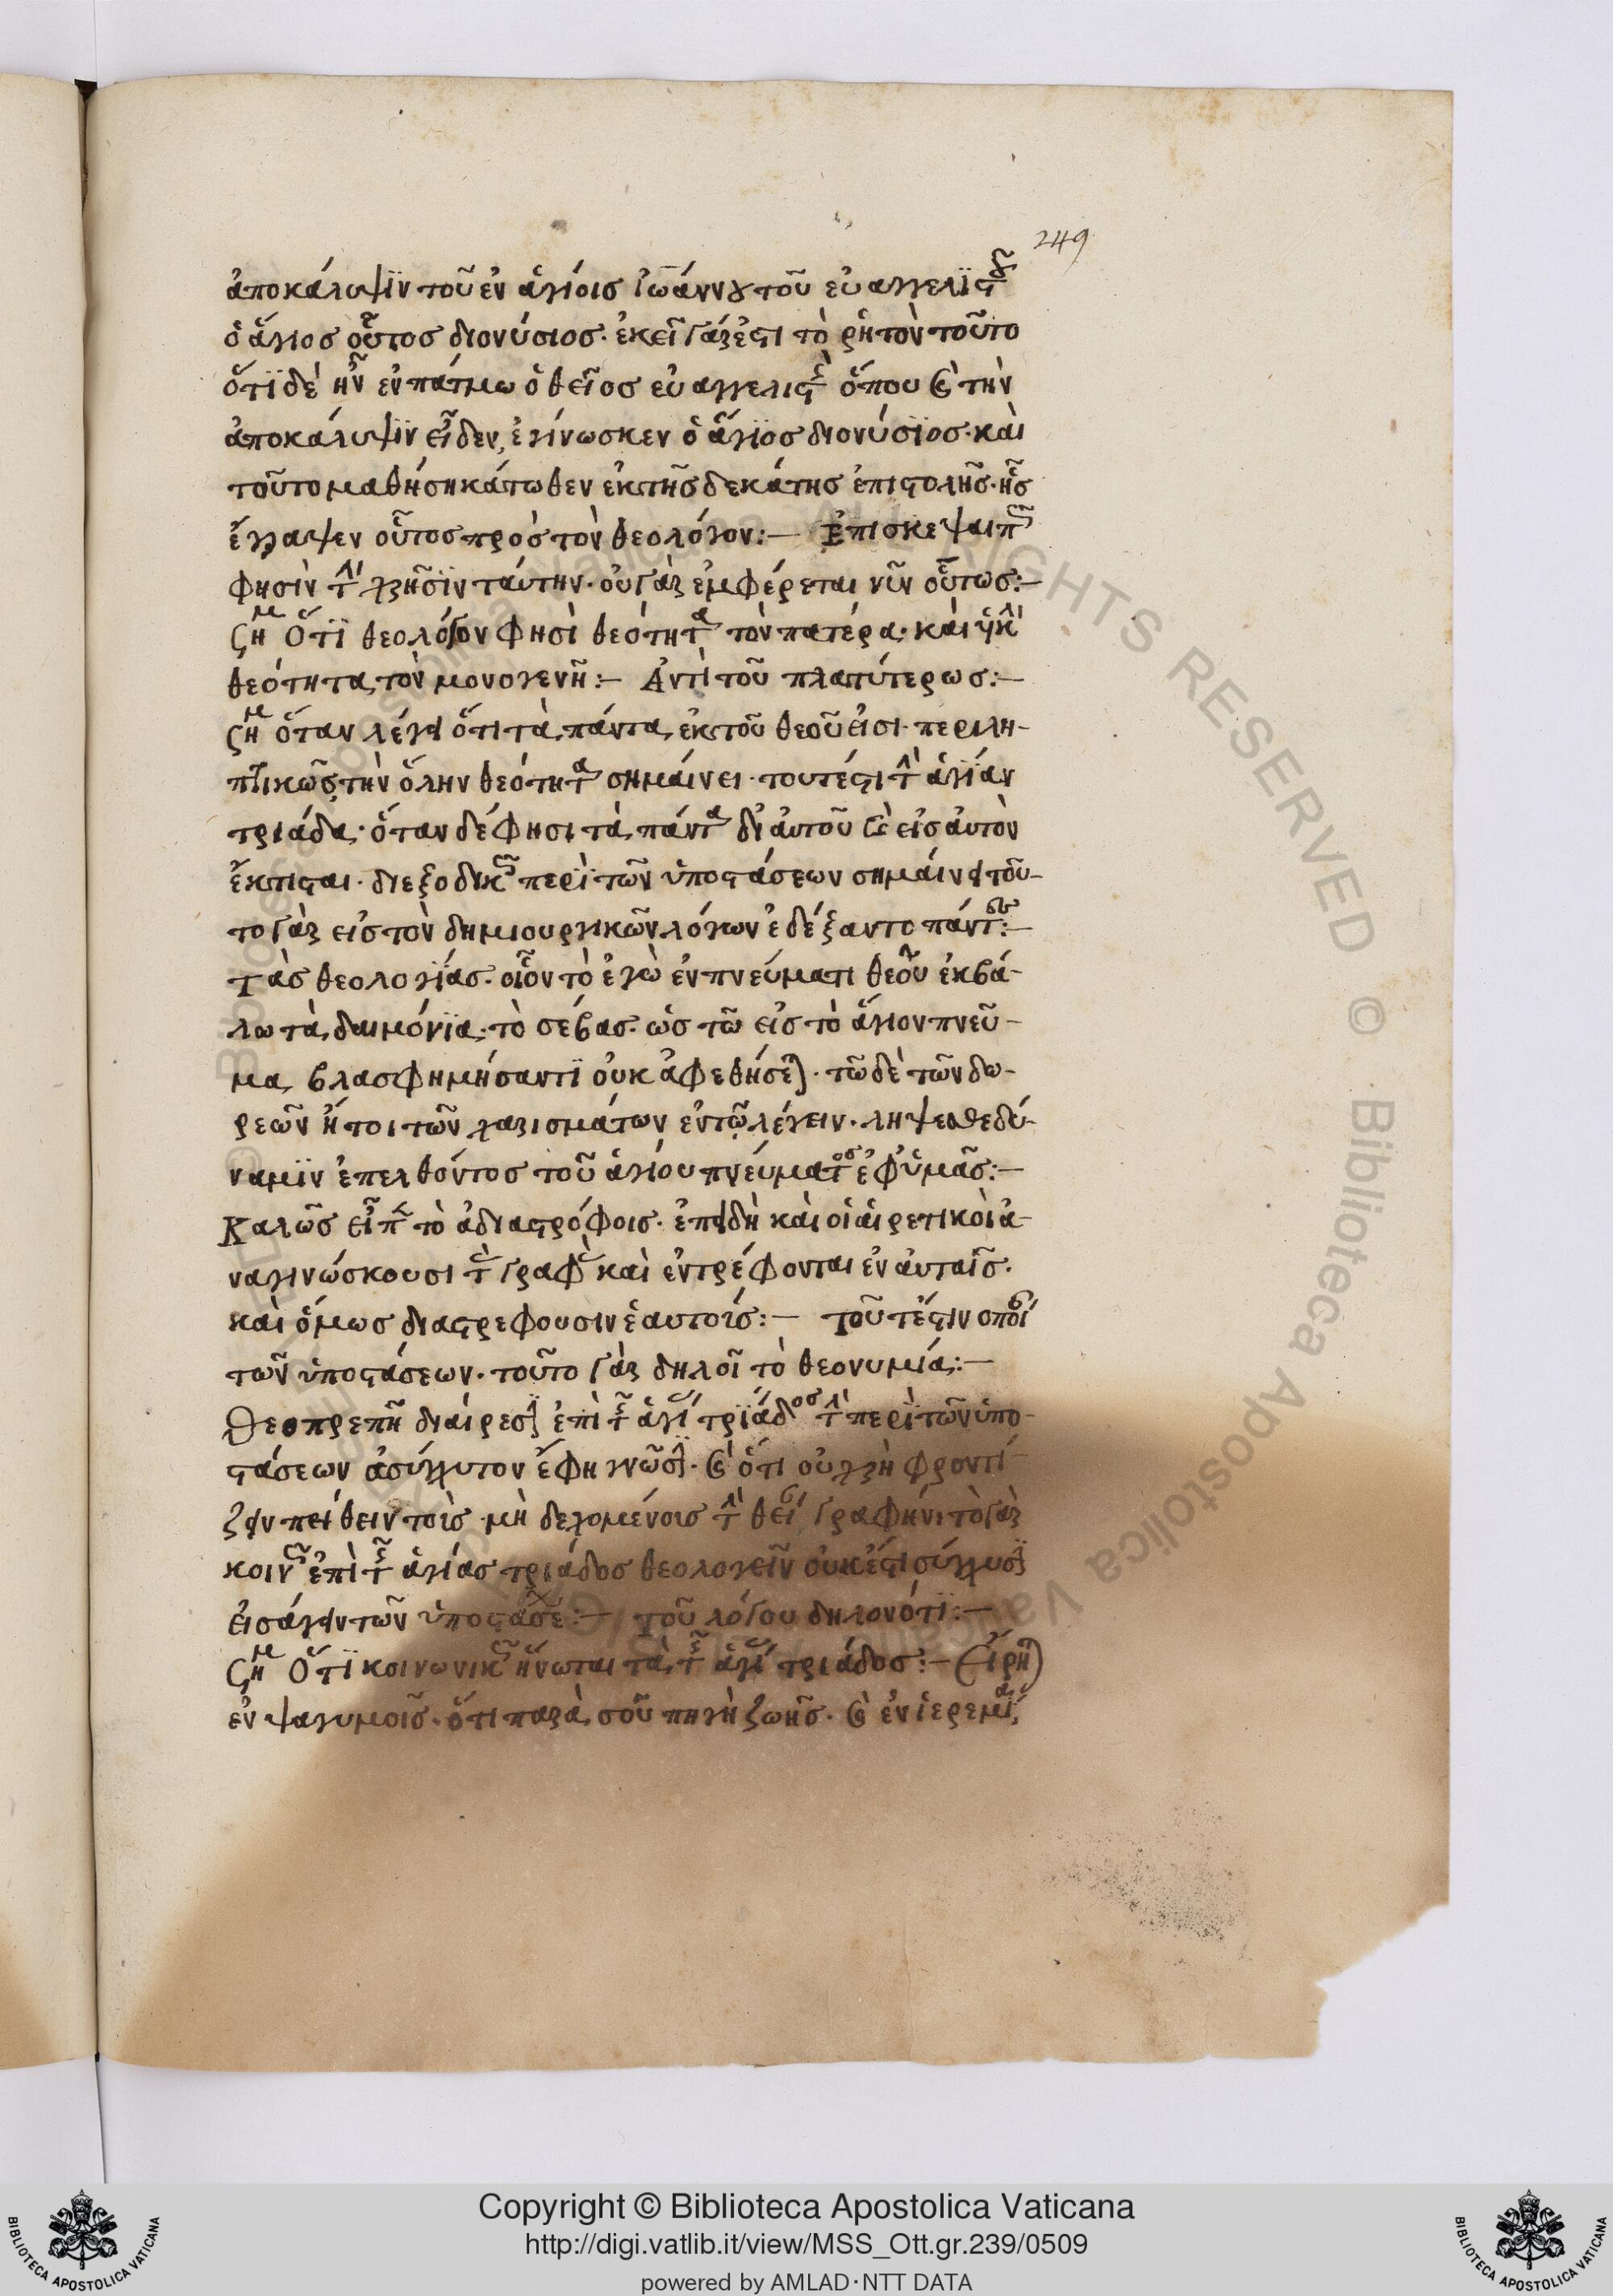 249
ἀποκάλυψϊν τοῦ ἐν ἁγίοις ἰωάννου τοῦ εὐαγγελϊστοῦ
ὁ ἅγιος οὗτος διονύσιος· ἐκεῖ γάρ ἐστι τὸ ῥητὸν τοῦτο
ὅτϊ δὲ ἦν ἐν πάτμω ὁ θεῖος εὐαγγελιστὴς ὅπου καὶ τὴν
ἀποκάλυψϊν εἶδεν, ἐγίνωσκεν ὁ ἅγϊος διονύσϊος· καὶ
τοῦτο μαθήση κάτωθεν ἐκ τῆς δεκάτης ἐπιστολῆς· ἧς
ἔγραψεν οὗτος πρὸς τὸν θεολόγον:— Ἐπισκεψαι πῶς
φησὶν τὴν χρῆσϊν ταύτην· οὐ γὰρ ἐμφέρεται νῦν οὕτως:—
ση Ὅτϊ θεολόγον φησὶ θεότητα τὸν πατέρα· καὶ υἱκὴν
θεότητα, τὸν μονογενῆ:— Ἀντὶ τοῦ πλατύτερως:—
ση ὅταν λέγει ὅτι τὰ πάντα, ἐκ τοῦ θεοῦ εἰσι· περιλη-
πτικῶς τὴν ὅλην θεότητα σημαίνει· τουτέστι τὴν ἁγϊαν
τριάδα· ὅταν δέ φησι τὰ πάντα δι' αὐτοῦ καὶ εἰς αὐτὸν
ἔκτισται· διεξοδικῶς περὶ τῶν ὑποστάσεων σημαίνει τοῦ-
το γὰρ εἰς τὸν δημιουργικῶν λόγων ἐδέξαντο πάντων:—
Τὰς θεολογϊας· οἷον τὸ ἐγὼ ἐν πνεύματι θεοῦ ἐκβά-
λω τὰ δαιμόνϊα· τὸ σέβας· ὡς τῶ εἰς τὸ ἅγιον πνεῦ-
μα, βλασφημήσαντϊ οὐκ ἀφεθήσεται· τῶ δὲ τῶν δω-
ρεῶν ἤτοι τῶν χαρισμάτων ἐν τῶ λέγειν· λήψεσθε δύ-
ναμϊν ἐπελθόντος τοῦ ἁγίου πνεύματος ἐφ' ὑμᾶς:—
Καλῶς εἶπεν τὸ ἀδιαστρόφοις· ἐπειδὴ καὶ οἱ αἱρετικοὶ ἀ-
ναγινώσκουσι τὰς γραφὰς καὶ ἐντρέφονται ἐν αὐταῖς·
καὶ ὅμως διαστρεφουσιν ἑαυτοῖς:— τουτέστιν ὁποία
τῶν ὑποστάσεων· τοῦτο γὰρ δηλοῖ τὸ θεονυμία:—
Θεοπρεπῆ διαίρεσϊν ἐπὶ τῆς ἁγίας τρϊάδος τὴν περὶ τῶν ὑπο-
στάσεων ἀσύγχυτον ἔφη γνῶσϊν· καὶ ὅτι οὐ χρὴ φροντί-
ζειν πείθειν τοῖς μὴ δεχομένοις τὴν θείαν γραφήν· τὸ γὰρ
κοινῶς ἐπὶ τῆς ἁγίας τριάδος θεολογεῖν οὐκ ἔστι σύγχυσϊν
εἰσάγειν τῶν ὑποστάσεων:— τοῦ λόγου δηλονότϊ:—
ση Ὅτϊ κοινωνικῶς ἥνωται τὰ τῆς ἁγίας τριάδος:— Εἴρηται
ἐν ψαλμοῖς· ὅτι παρὰ σοῦ πηγὴ ζωῆς· καὶ ἐν ἱερεμία,
Copyright © Biblioteca Apostolica Vaticana
http://digi.vatlib.it/view/MSS_Ott.gr.239/0509
powered by AMLAD·NTT DATA
BIBLIOTECA APOSTOLICA VATICANA
BIBLIOTECA APOSTOLICA VATICANA